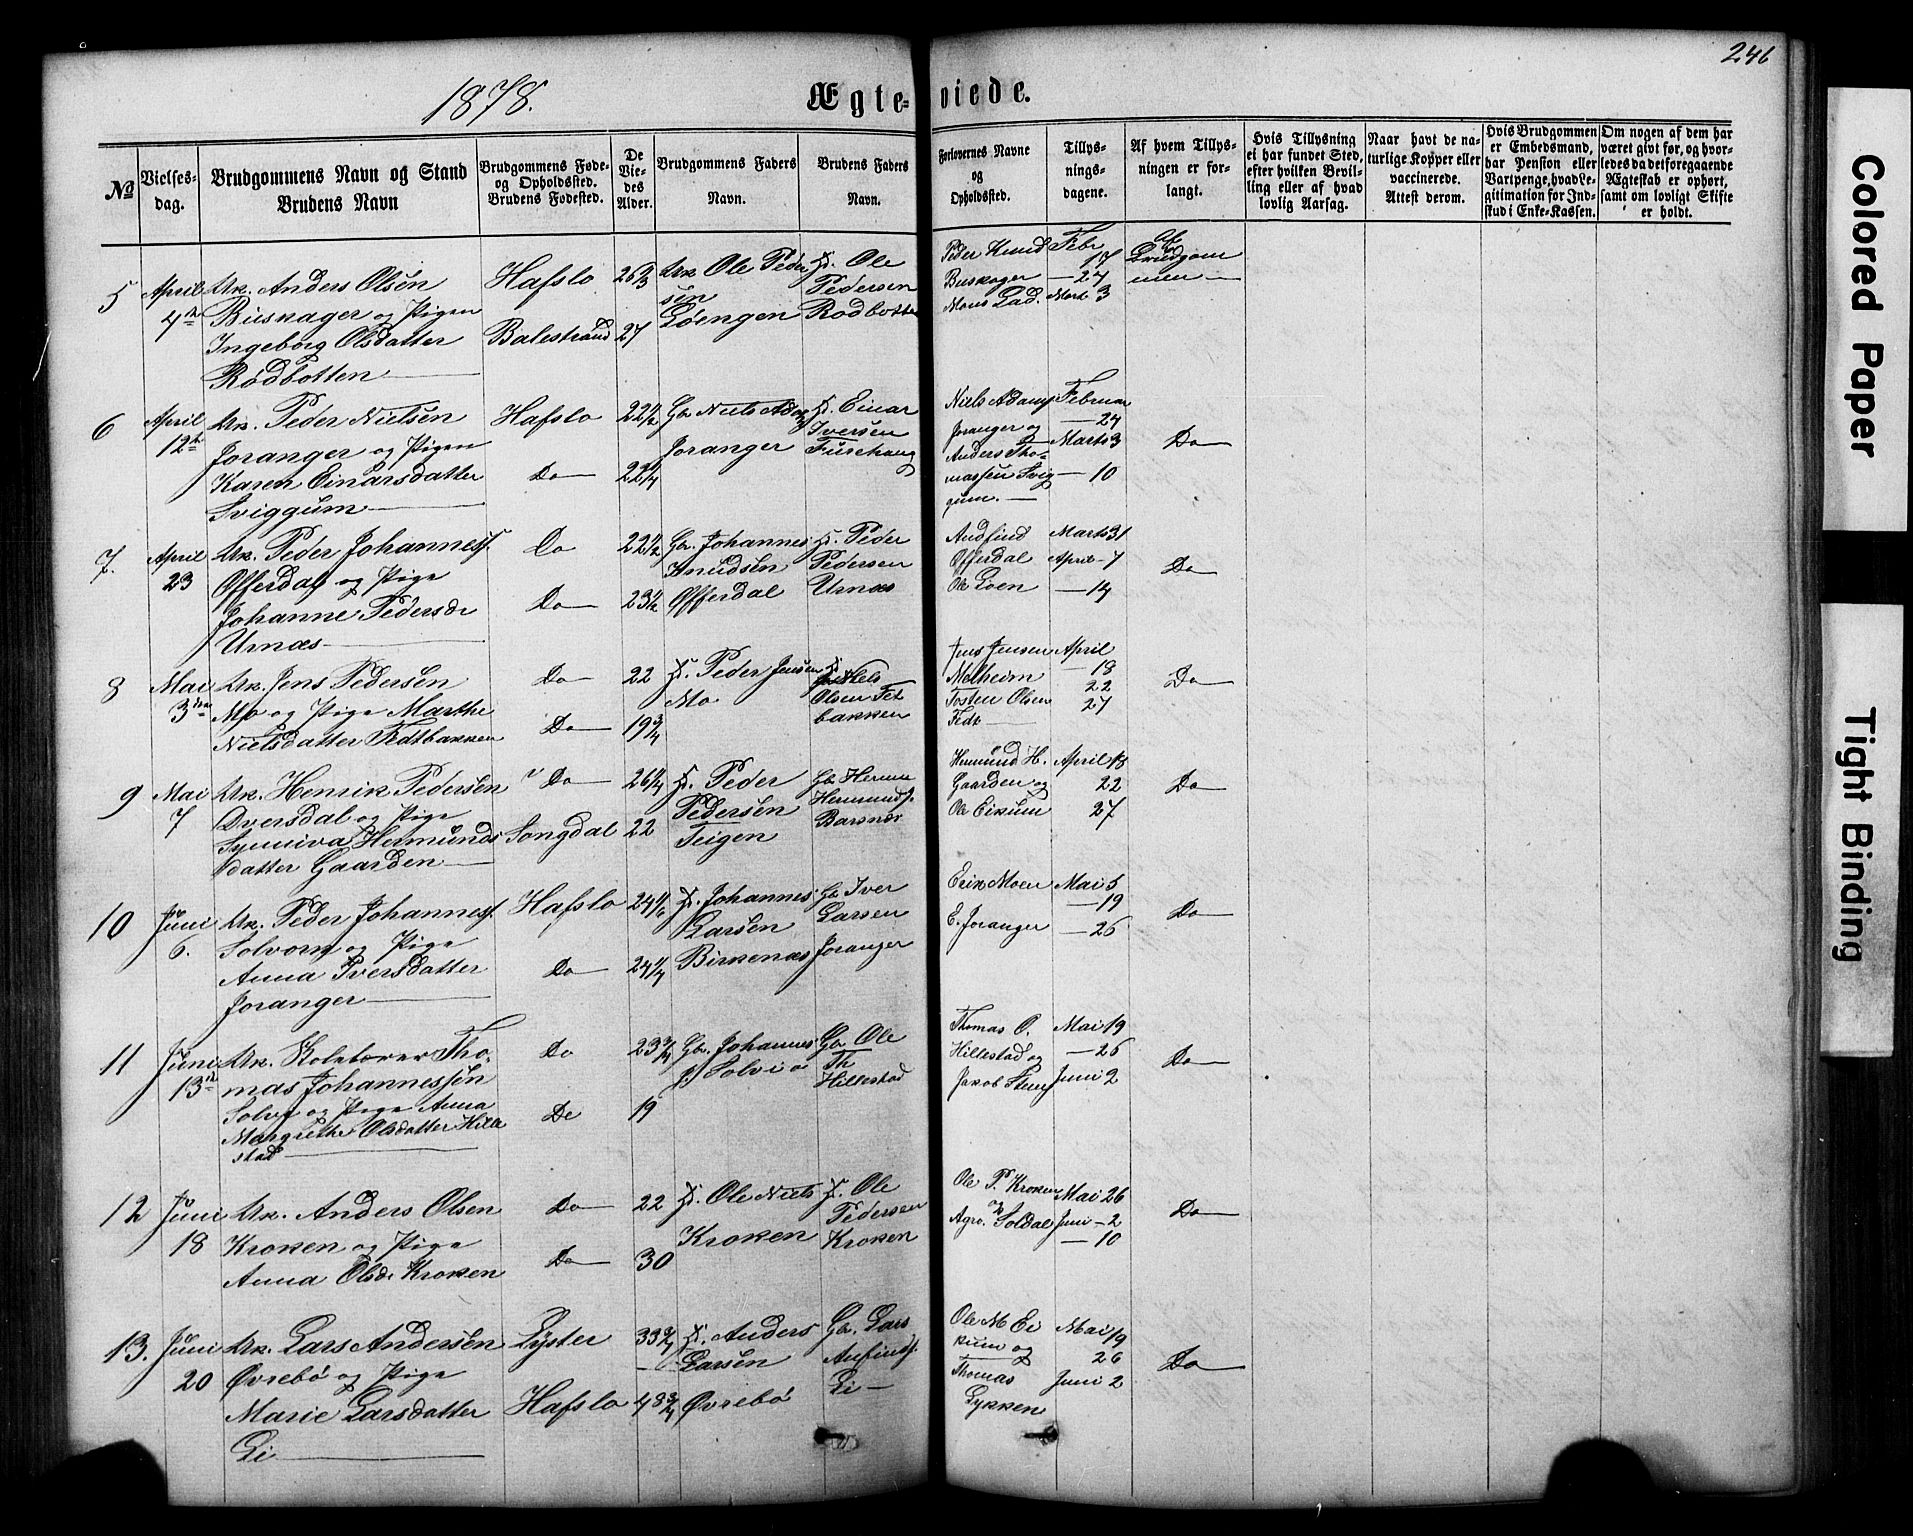 246
1878.
Ægte-viede.
No
Vielses-
dag.
Brudgommens Navn og Stand
Brudens Navn
Brudgommens Føde-
og Opholdssted.
Brudens Fødested.
De
Vie-
des
Alder.
Brudgommens Faders
Navn.
Brudens Faders
Navn.
Forlovernes Navne
og
Opholdssted.
Tillys-
nings-
dagene.
Af hvem Tillys-
ningen er for-
langt.
Hvis Tillysning
ei har fundet Sted,
efter hvilken Bevil-
ling eller af hvad
lovlig Aarsag.
Naar havt de na-
turlige Kopper eller
vaccinerede.
Attest derom.
Hvis Brudgommen
er Embedsmand,
har Pension eller
Vartpenge, hvad Le-
gitimation for Ind-
skud i Enke-Kassen.
Om nogen af dem har
været gift før, og hvor-
ledes da det foregaaende
Ægteskab er ophørt,
samt om lovligt Skifte
er holdt.
5
April
4de
Uk. Anders Olsen
Buskager og Pigen
Ingeborg Olsdatter
Rødbotten
Hafslo
Balestrand
27
Uk Ole Peder
sen
Løengen
Ole
Pedersen
Rodbotten
Peder Knud
Buskager
Mons Lad.
Febr
17
— 24
Marts 3
Af
Brudgom
men —
6
April
12te
Uk. Peder Nielsen
Joranger og Pigen
Karen Einarsdatter
Sviggum
Hafslo
Do
22 1/2
22 1/4
Gbr Niels Adams
Joranger
Einar
Iversen
Furehaug
Niels Adams
Joranger og
Anders Tho-
massen Svig
gum. —
Februar
— 24
Marts 3
— 10
Do
7.
April
23
Uk. Peder Johannes.
Offerdal og Pige
Johanne Pedersdr
Urnæs
Do
Do
22 1/2
23 1/2
Gbr. Johannes
Knudsen
Offerdal
Peder
Pedersen
Urnæs
Andfind
Offerdal
Ole Loen
Marts 31
April - 7
— 14
Do
8
Mai
3die
Uk. Jens Pedersen
Mo og Pige Marthe
Nielsdatter Fedtbakken
Do
Do
22
19 3/4
Peder Jensen
Mo
Niels
Olsen Fet
bakken
Jens Jensen
Melheim
Tosten Olsen
Fedt
April
— 18
22
27
Do
9
Mai
7
Uk. Henrik Pedersen
Dversdal og Pige
Synneva Hermunds
datter Gaarden
Do
Songdal
26 1/4
22
Peder
Pedersen
Teigen
Gbr Hermu
Hermunds.
Barsnes
Hermund H.
Gaarden og
Ole Eikum
April 18
22
27
Do
10
Juni
6.
Uk. Peder Johannes.
Solvorn og Pige
Anna Iversdatter
Joranger
Hafslo
Do
24 1/6
24 1/4
Johannes
Larsen
Birkenæs
Gbr Iver
Larsen
Joranger
Erik Moen
E. Joranger
Mai 5
— 19
— 26
Do
11
Juni
13de
Uk. Tho-
mas Johannessen
Solvi og Pige Anna
Margrethe Olsdatter Hille
stad
Do
Do
23 3/4
19
Gbr. Johannes
Solvi
Gbr Ole
Th
Hillestad
Thomas O.
Hillestad og
Jakob Steen
Mai 19
— 26
Juni 2
Do
12
Juni
18
Uk. Anders Olsen
Kroken og Pige
Anna Olsdr Kroken
Do
Do
22
30
Ole Niels
Kroken
Ole
Pedersen
Kroken
Ole P. Kroken
Agro. Soldal
Mai 26
Juni - 2
— 10
Do
13.
Juni
20
Uk. Lars Andersen
Øvrebø og Pige
Marie Larsdatter
Li
Lyster
Hafslo
48 3/4
Anders
Larsen
Øvrebø
Gbr. Lars
Anfinds.
Li —
Ole M Ei
kum og
Thomas
Lykken
Mai 19
26
Juni 2
Do
Colored Paper
Tight Binding